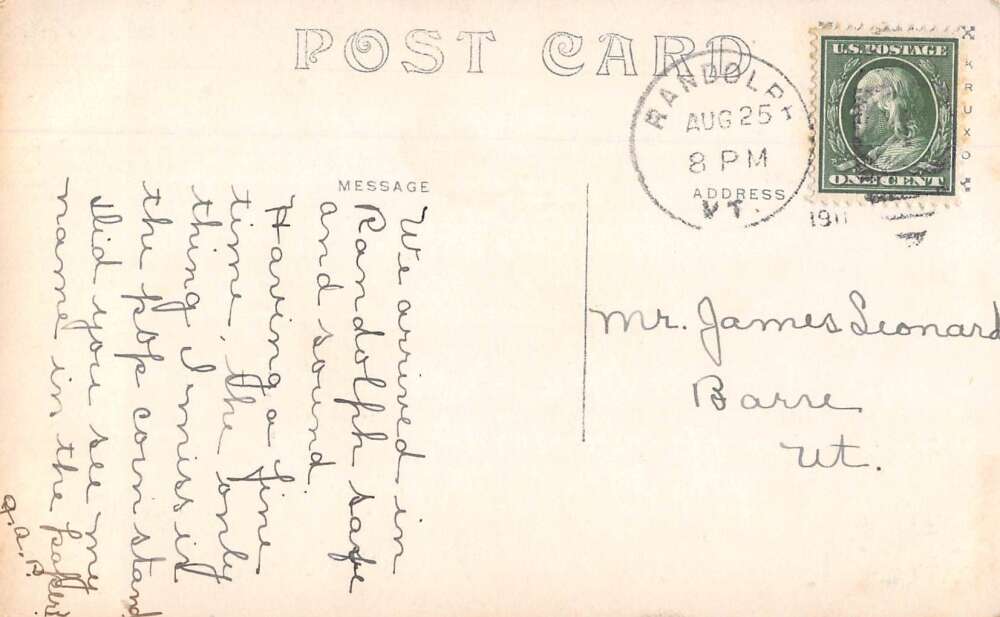 POST CARD
RANDOLPH
AUG 25
8 PM
VT.
1911
U.S. POSTAGE
ONE CENT
MESSAGE
ADDRESS
We arrived in
Randolph safe
and sound.
Having a fine
time, the only
thing I miss is
the pop corn stand
Did you see my
name in the paper?
Mr. James Leonard
Barre
Vt.
KRUXO